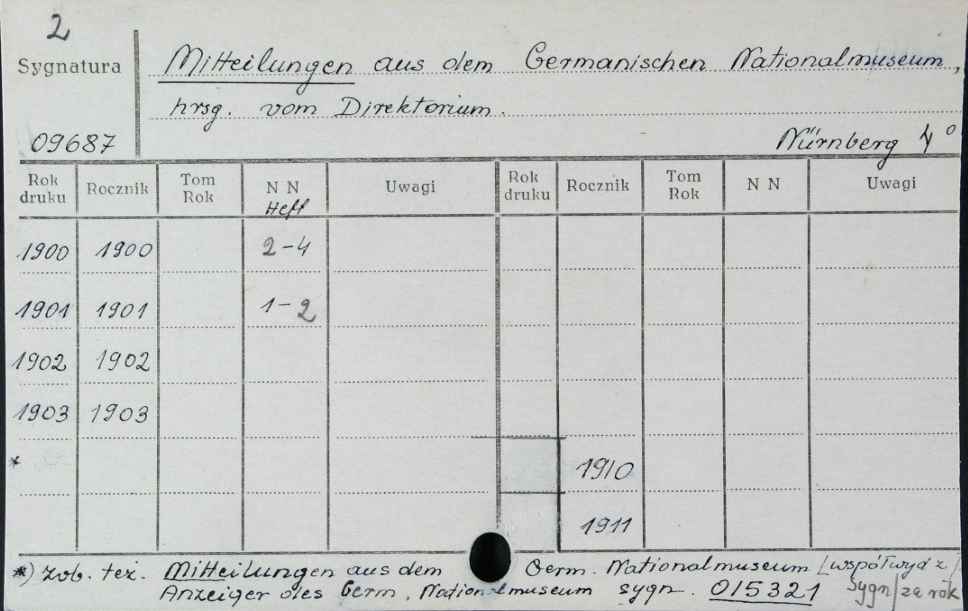 2
Sygnatura
Mitteilungen aus dem Germanischen Nationalmuseum,
hrsg. vom Direktorium.
09687
Nürnberg 4°
Rok druku Rocznik Tom Rok N N Heft Uwagi Rok druku Rocznik Tom Rok N N Uwagi
1900 1900 2-4
1901 1901 1-2
1902 1902
1903 1903
* 1910
1911
*) zob. też. Mitteilungen aus dem Germ. Nationalmuseum /współwyd z/
Anzeiger des Germ. Nationalmuseum sygn. 015321 Sygn/za rok